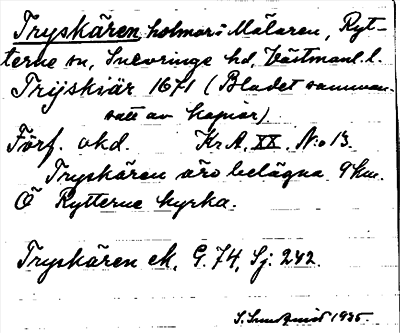 Tryskären holmar i Mälaren, Ryt-
terne sn, Snevringe hd, Västmanl. l.
Trijskiär 1671 (Bladet samman-
satt av kopior)
Förf. okd. Kr.A. XX. N:o 13.
Tryskären äro belägna 9 km.
Ö Rytterne kyrka.
Tryskären ek. G. 74, Sj. 242.
S. 1935.